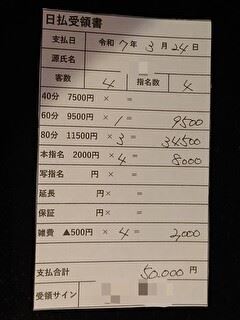 日払受領書
支払日 令和 7年 3月 24日
源氏名
客数 4 指名数 4
40分 7500円 × =
60分 9500円 × 1 = 9500
80分 11500円 × 3 = 34,500
本指名 2000円 × 4 = 8000
写指名 円 × =
延長 円 × =
保証 円 × =
雑費 ▲500円 × 4 = 2,000
支払合計 50.000 円
受領サイン